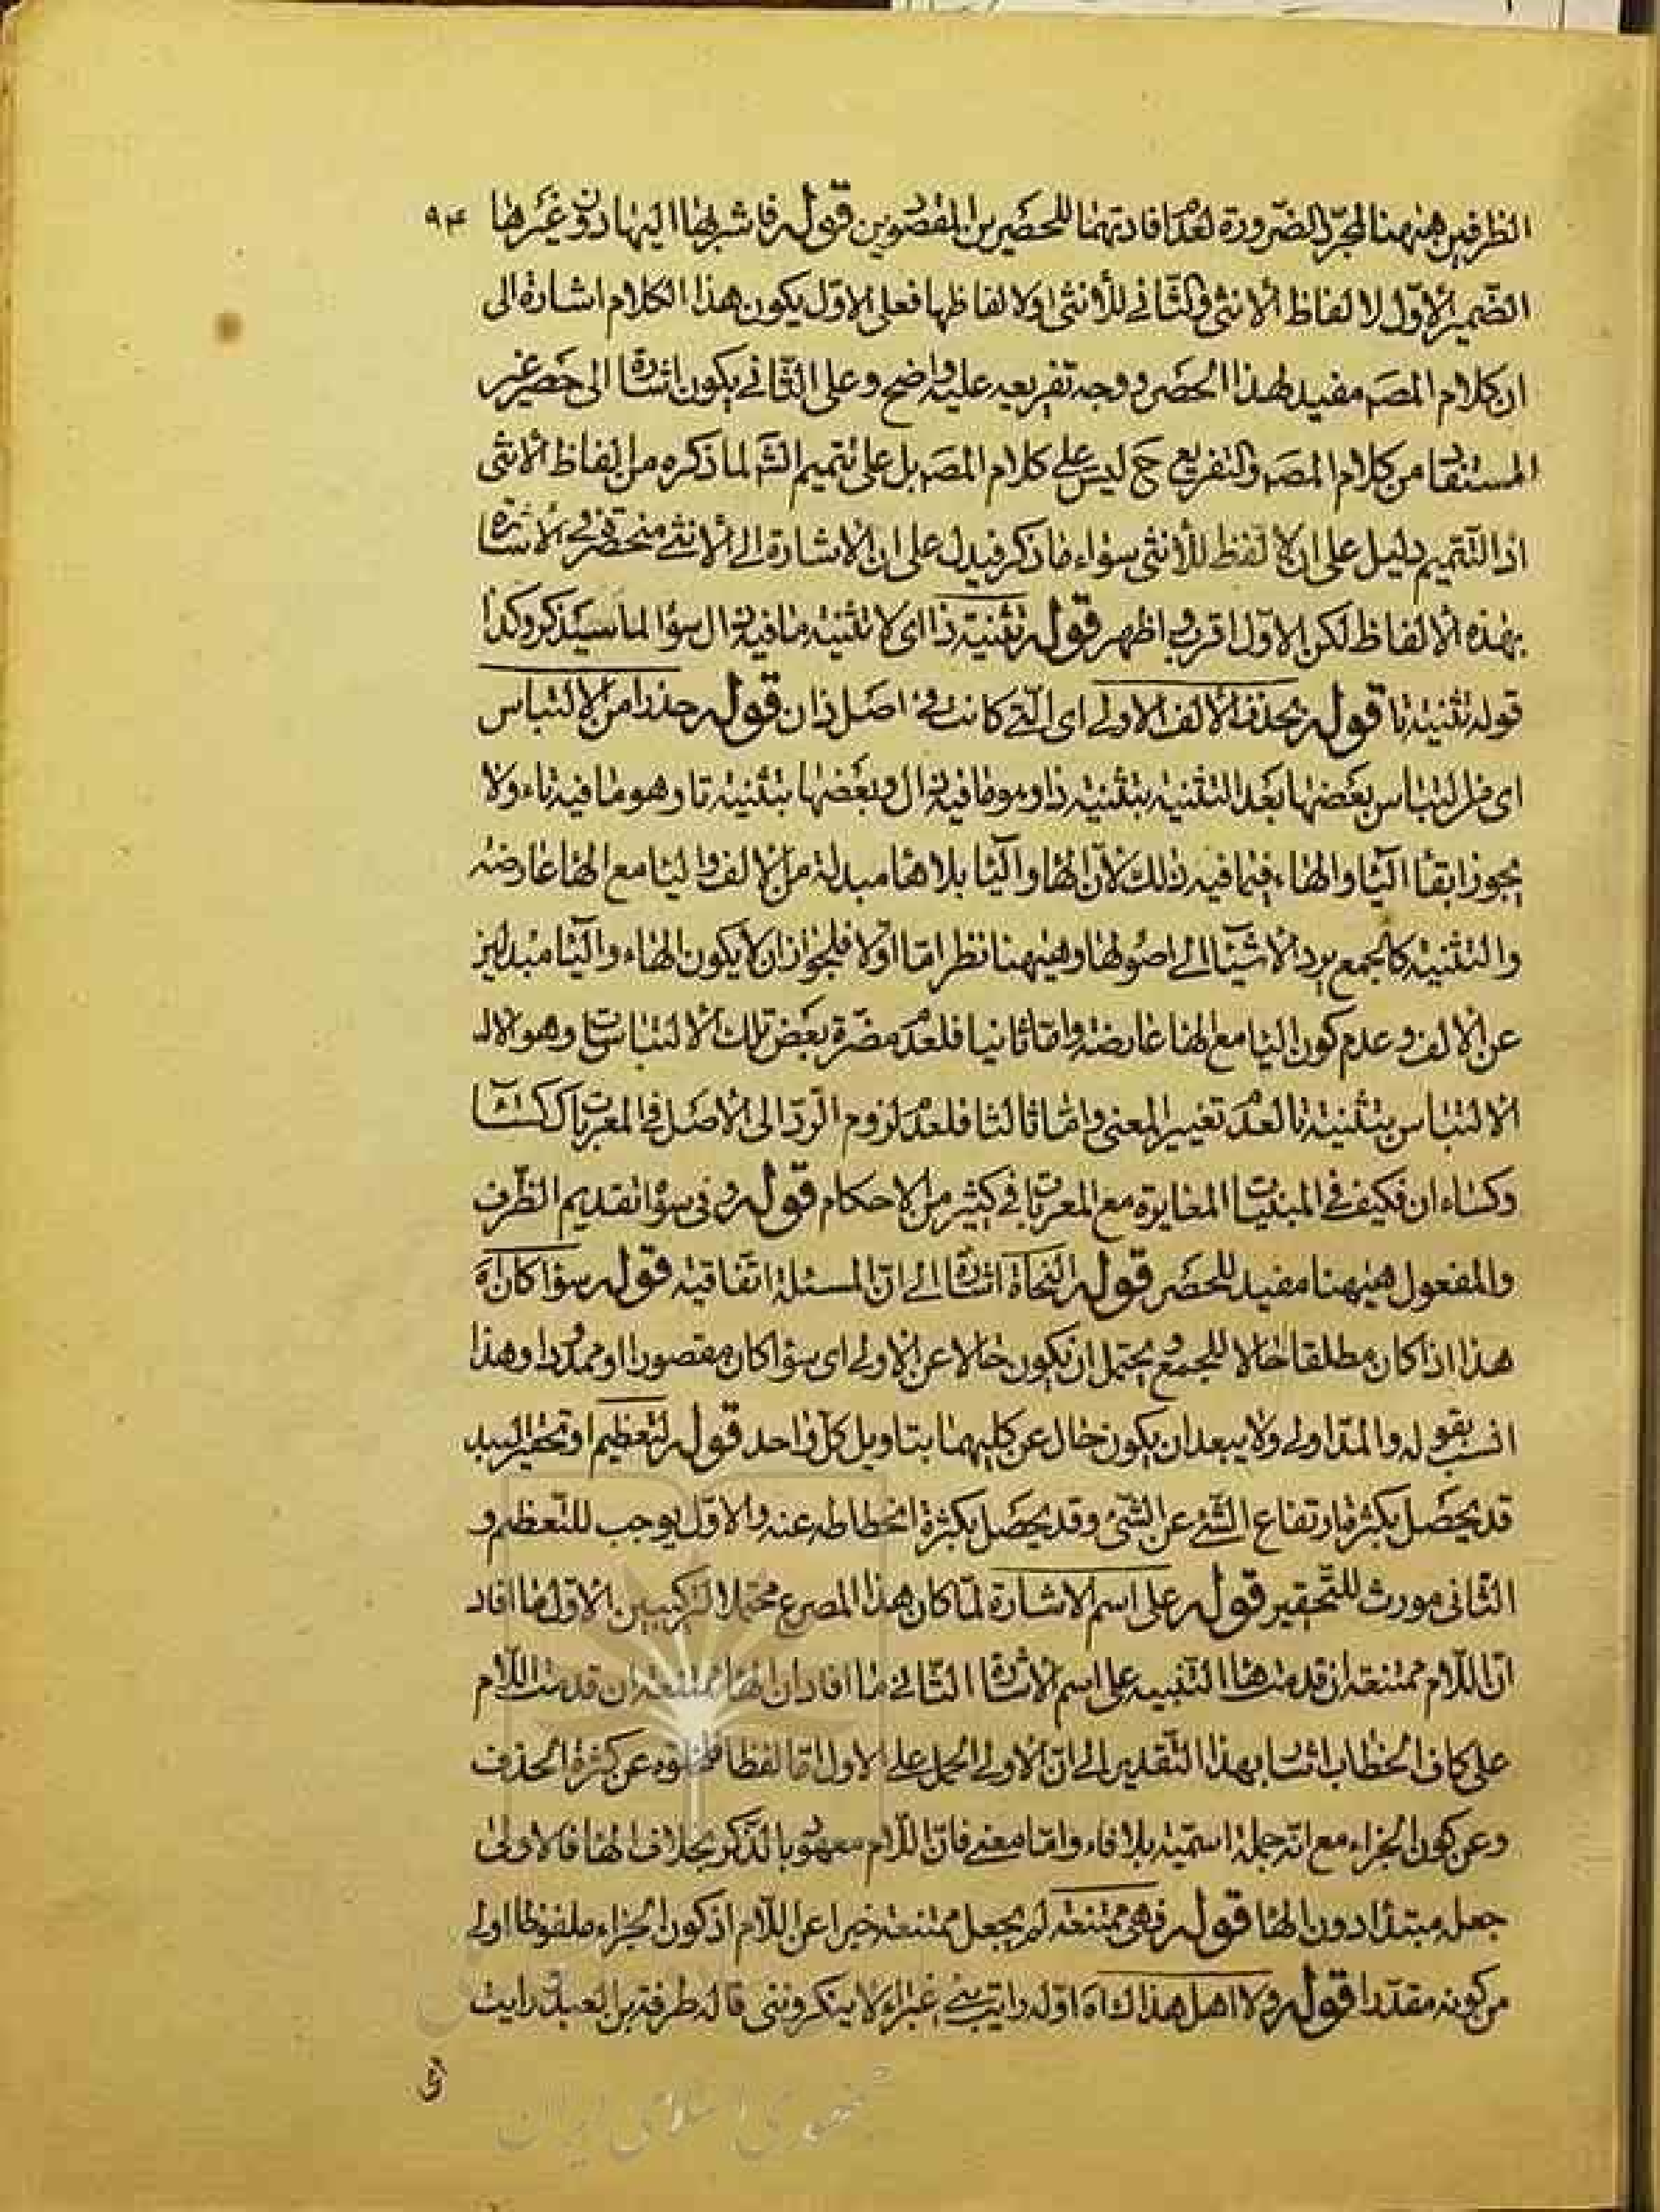 الظرفين هيهنا لمجرد الضرورة لعدم افادتهما للحصرين المقصودين قوله فاشر بها اليها دون غيرها ٩۴
الضمير الاول لالفاظ الانثى والثانى للأنثى او لالفاظها فعلى الاول يكون هذا الكلام اشارة الى
ان كلام المصـ مفيد لهذا الحصر ووجه تفريعه عليه واضح وعلى الثانى يكون اشارة الى حصر غير
المستفاد من كلام المصـ والتفريع ح ليس على كلام المصـ بل على تتميم الشـ لما ذكره من الفاظ الانثى
اذ التتميم دليل على ان لا لفظ للأنثى سواء ما ذكر فيدل على ان الاشارة الى الانثى منحصرة فى الاشارة
بهذه الالفاظ لكن الاول اقرب واظهر قوله تثنية ذا اى لا تثنية ما فيه ذال سؤا لما سيذكر وكذا
قوله تثنية تا قوله بحذف الالف الاولى اى التى كانت فى اصل ذان قوله حذرا من الالتباس
اى من التباس بعضها بعد التثنية بتثنية ذا وهو ما فيه ذال وبعضها بتثنية تا وهو ما فيه تاء ولا
يجوز ابقا اليا والهاء فيما فيه ذلك لان الها واليا بلا ها مبدلة من الالف واليا مع الها عارضه
والتثنية كالجمع يرد الاشيا الى اصولها وهيهنا نظر اما اولا فلجواز ان لا يكون الهاء واليا مبدلين
عن الالف وعدم كون اليا مع الها عارضة واما ثانيا فلعدم مضرة بعض تلك الالتباسات وهو الا
الالتباس بتثنية تا لعدم تغيير المعنى واما ثالثا فلعدم لزوم الرد الى الاصل فى المعربات ككسا
وكساءان فكيف فى المبنيات المغايرة مع المعربات فى كثير من الاحكام قوله وفى سؤا تقديم الظرف
والمفعول هيهنا مفيد للحصر قوله النحاة اشارة الى ان المسئلة اتفاقية قوله سؤا كان اه
هذا اذا كان مطلقا حالا للجمع ويحتمل ان يكون حالا عن الاولى اى سؤا كان مقصورا او ممدودا وهذا
انسب بقوله والمد اولى ولا يبعد ان يكون حال عن كليهما بتاويل كل واحد قوله لتعظيم او تحقير البعد
قد يحصل بكثرة ارتفاع الشئ عن الشئ وقد يحصل بكثرة انحطاطه عنه والاول يوجب للتعظيم و
الثانى مورث للتحقير قوله على اسم الاشارة لما كان هذا المصرع محتملا لتركيبين الاول ما افاد
ان اللام ممتنعة ان قدمت ها التنبيه على اسم الاشارة الثانى ما افاد ان الها ممتنعة ان قدمت اللام
على كاف الخطاب اشا بهذا التقدير الى ان الاولى الحمل على الاول اما لفظا فخلوه عن كثرة الحذف
وعن كون الجزاء مع انه جملة اسمية بلا فاء واما معنى فان اللام معهود بالذكر بخلاف الها فالاولى
جعله مبتدأ دون الها قوله فهى ممتنعة لم يجعل ممتنعة خبرا عن اللام اذ كون الجزاء ملفوظا اولى
من كونه مقدرا قوله ولا اهل هذاك اه اوله رايت بنى غبراء لا ينكروننى قاله طرفة بن العبد رايت